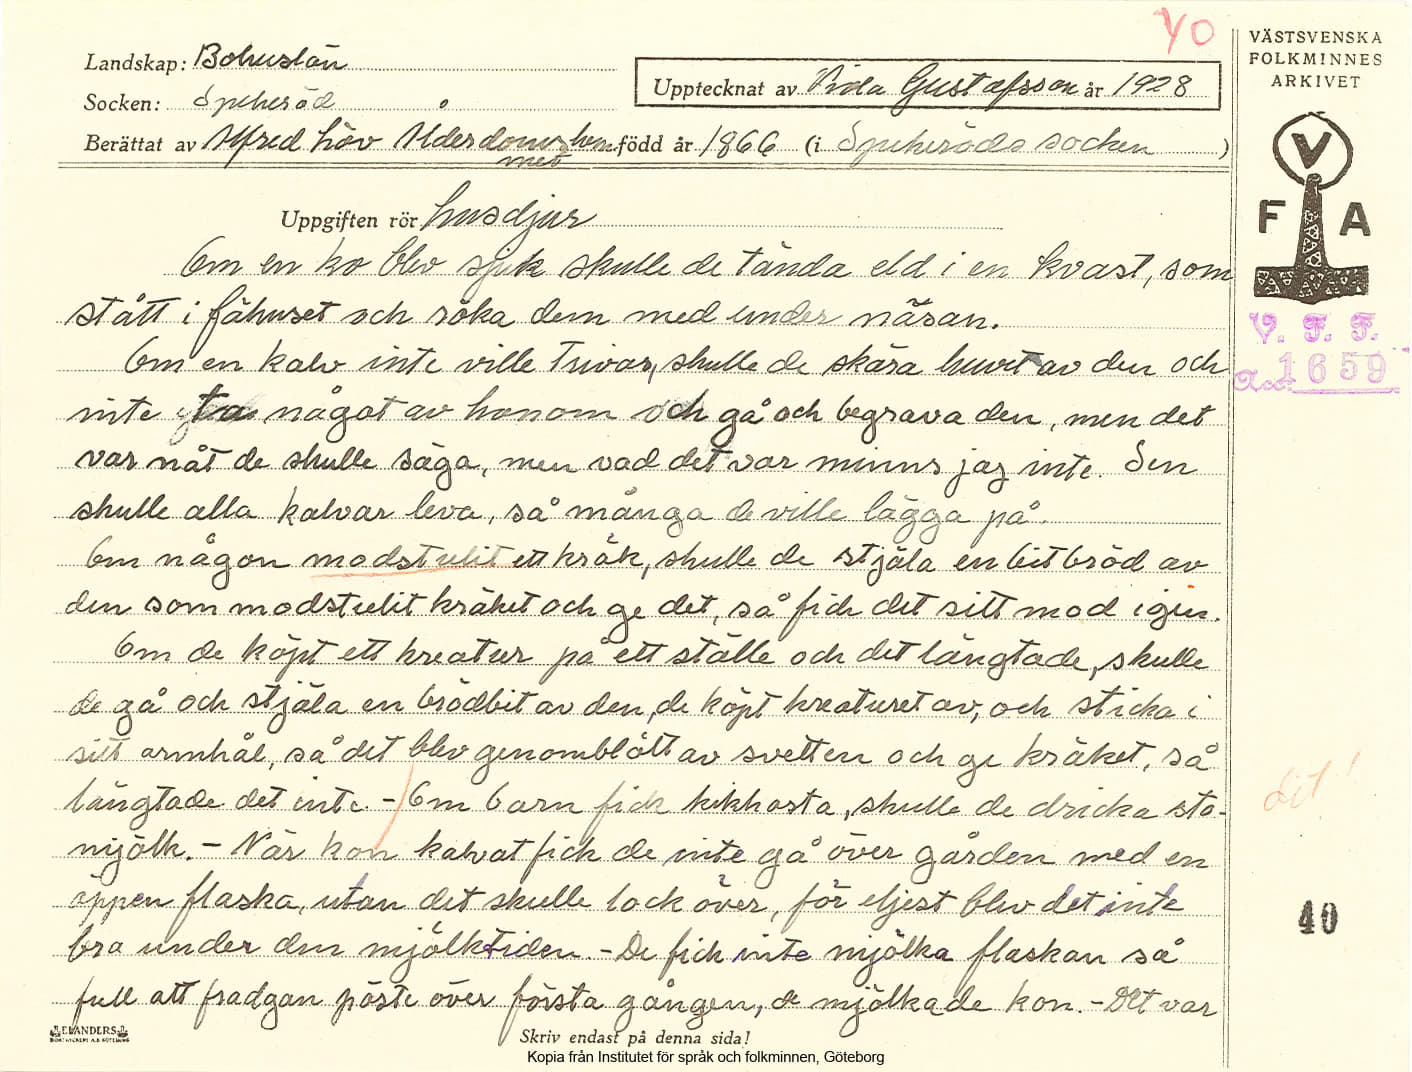 40
Landskap: Bohuslän
Socken: Spekeröd
Upptecknat av Frida Gustafsson år 1928
Berättat av Alfred Löv född år 1866 (i Spekeröds socken)
Uppgiften rör husdjur
Om en ko blev sjuk skulle de tända eld i en kvast, som
stått i fähuset och röka dem med under näsan.
Om en kalv inte ville trivas, skulle de skära huvet av den och
inte ta något av honom och gå och begrava den, men det
var nåt de skulle säga, men vad det var minns jag inte. Sen
skulle alla kalvar leva, så många de ville lägga på.
Om någon modstulit ett kräk, skulle de stjäla en bit bröd av
den som modstulit kräket och ge det, så fick det sitt mod igen.
Om de köpt ett kreatur på ett ställe och det längtade, skulle
de gå och stjäla en brödbit av den, de köpt kreaturet av, och sticka i
sitt armhål, så det blev genomblött av svetten och ge kräket, så
längtade det inte. - Om barn fick kikhosta, skulle de dricka sto-
mjölk. - När kon kalvat fick de inte gå över gården med en
öppen flaska, utan det skulle lock över, för eljest blev det inte
bra under den mjölktiden. - De fick inte mjölka flaskan så
full att fradgan pöste över första gången, de mjölkade kon. - Det var
ELANDERS
Skriv endast på denna sida!
Kopia från Institutet för språk och folkminnen, Göteborg
VÄSTSVENSKA
FOLKMINNES
ARKIVET
V
F A
V. F. F.
Acc. 1659
dit!
40